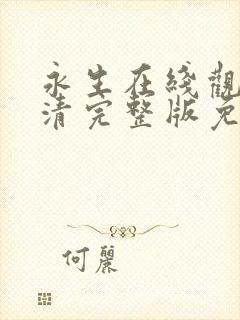 永生在綫觀
清完整版免
何麗